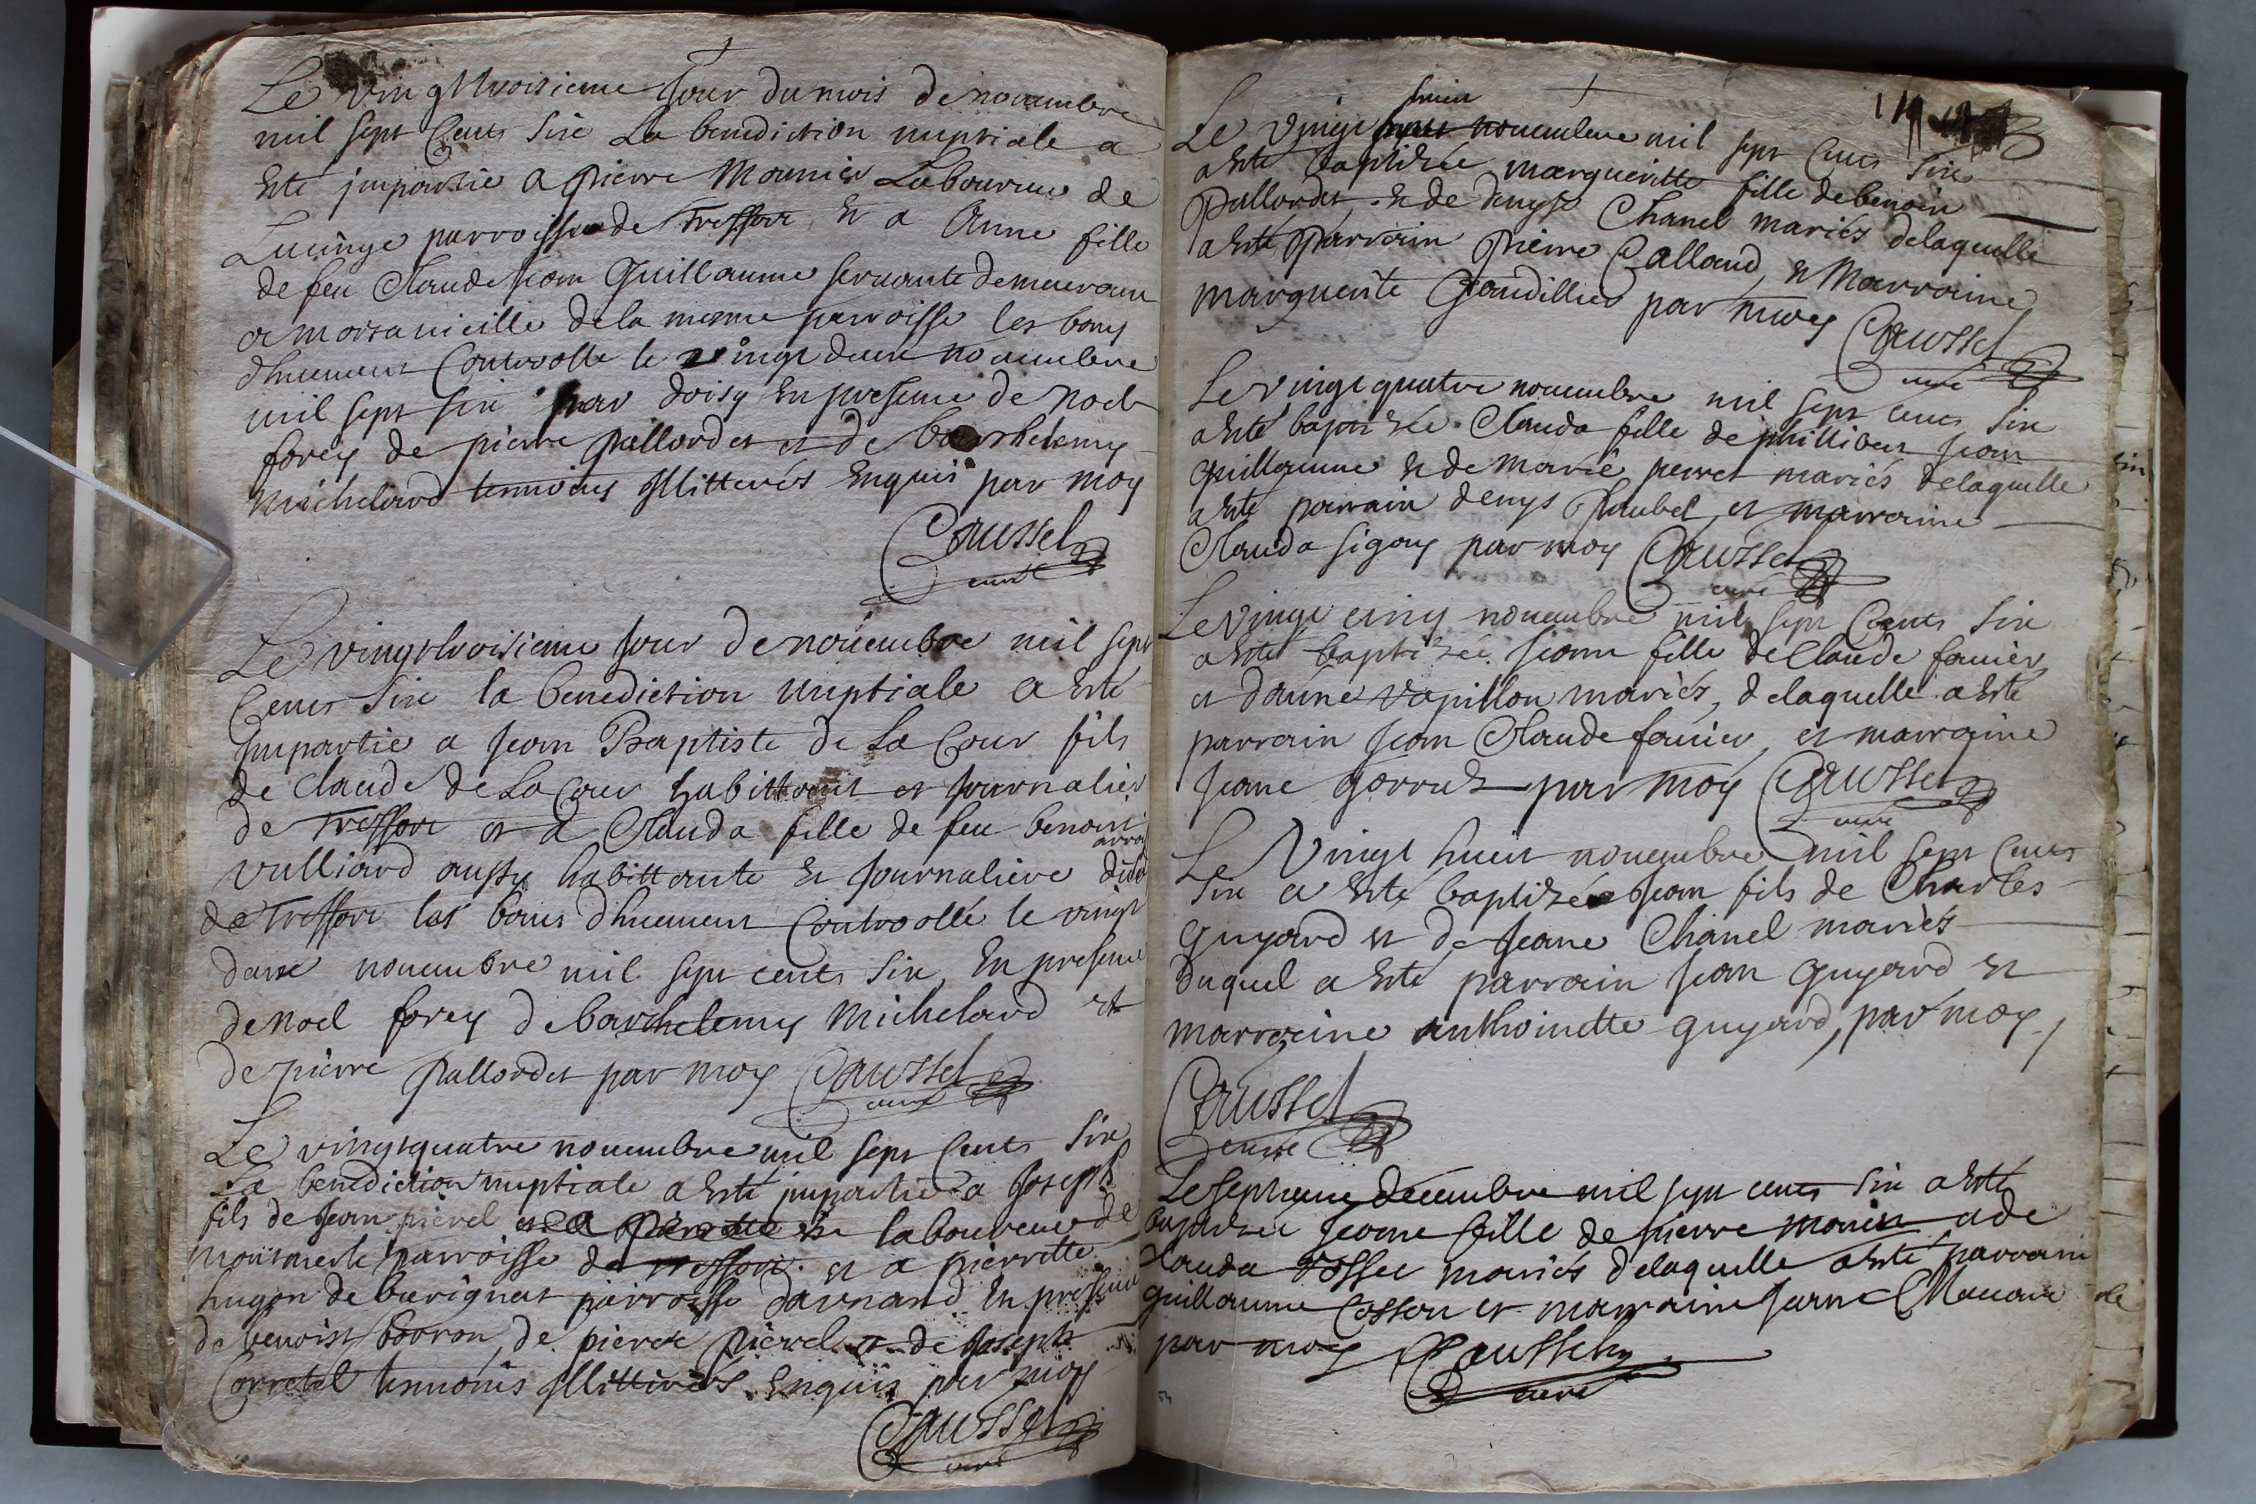 Le vingttroisieme jour du mois de nouembre
mil sept Cents Six La benediction nuptiale a
Esté impartie a pierre Mounier Laboureur de
Lucinge parroisse de Treffort Et a Anne fille
de feu Claude Jean Guillaume seruante demeurant
a morsanieille de la mesme parroisse les bans
dhuement Controolle le vingt deux nouembre
mil sept six par doisy En presence de Noel
forey de pierre pallordet et de barthelemy
Michelard temoins Illitterés Enquis par moy
Caussel
curé
Le vingt troisieme jour de nouembre mil sept
Cents Six la benediction Nuptiale a Esté
Impartie a Jean Baptiste de La Cour fils
de Claude de La Cour habittant et Journalier
de Treffort et a Clauda fille de feu benoit
Vulliard aussy habittante Et Journaliere dud
de Treffort les bans dhuement Controollé le vingt
deux nouembre mil sept cents Six, En presence
de Noel forey de barthelemy Michelard et
de pierre pallordet par moy Caussel
curé
Le vingtquatre nouembre mil sept Cents Six
La benediction nuptiale a Esté impartie a Joseph
fils de Jean pierel laboureur de
montmerle parroisse de Treffort et a pierrette
hugon de bevignat parroisse Darnand En presence
de benoist borron, de pierre pierel et de Joseph
Corretel temoins Illitterés Enquis par moy
Caussel
curé
huit
Le Vingt nouembre mil sept Cents Six
a Esté baptizée margueritte fille de benoin
Pallordet, Et de denyse Chanel mariés de laquelle
a Esté parrain pierre Calland, Et Marraine
marguerite Grandillier par moy Caussel
curé
Le vingt quatre nouembre mil sept cents Six
a Esté baptizée Clauda fille de phillibert Jean
guillaume Et de Marie perret mariés de laquelle
a Esté parrain denys Chanbel et marraine
Clauda sigoy par moy Caussel
curé
Le vingt cinq nouembre mil sept Cents Six
a Esté baptizée Jeane fille de Claude fauier
et danne vapillon mariés, de laquelle a Esté
parrain Jean Claude fauier, et marraine
Jeane gorrut par moy Caussel
curé
Le Vingt huit nouembre mil sept Cents
Six a Esté baptizée Jean fils de Charles
Guyard et de Jeane Chanel mariés
duquel a Esté parrain Jean Guyard Et
marraine anthoinette guyard, par moy
Caussel
curé
Le septieme decembre mil sept cents Six a Esté
baptizée Jeane fille de pierre monin et de
Clauda Vossec mariés de laquelle a Esté parrain
guillaume Cosson et marraine Jeane
par moy Caussel
curé